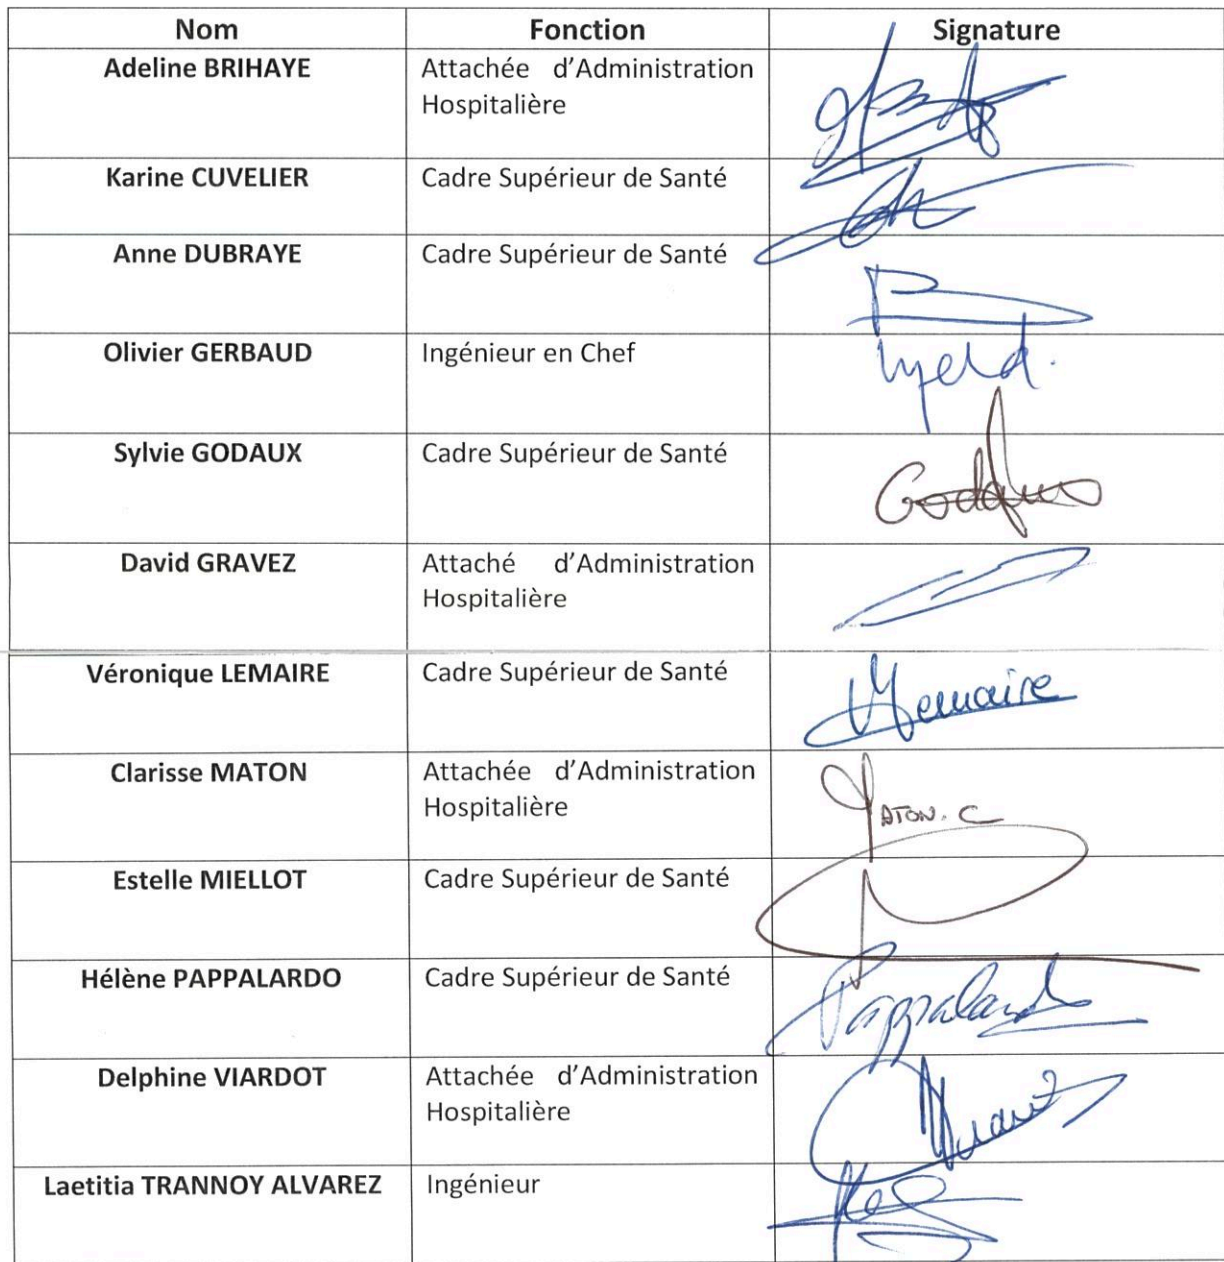 Nom Fonction Signature
Adeline BRIHAYE Attachée d'Administration
Hospitalière
Karine CUVELIER Cadre Supérieur de Santé
Anne DUBRAYE Cadre Supérieur de Santé
Olivier GERBAUD Ingénieur en Chef
Sylvie GODAUX Cadre Supérieur de Santé
Godaux
David GRAVEZ Attaché d'Administration
Hospitalière
Véronique LEMAIRE Cadre Supérieur de Santé
Lemaire
Clarisse MATON Attachée d'Administration
Hospitalière
MATON. C
Estelle MIELLOT Cadre Supérieur de Santé
Hélène PAPPALARDO Cadre Supérieur de Santé
Pappalardo
Delphine VIARDOT Attachée d'Administration
Hospitalière
Laetitia TRANNOY ALVAREZ Ingénieur